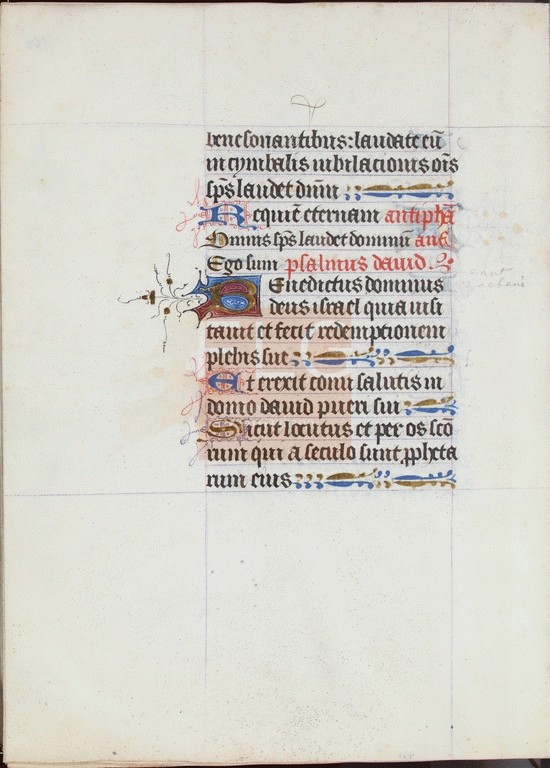 benesonantibus: laudate eū
in cymbalis iubilacionis oīs
sp̄s laudet dnm̄
Requiē eternam antiphā
Omnis sp̄s laudet dominū anā
Ego sum psalmus dauid.
Benedictus dominus
deus israel quia uisi
tauit et fecit redemptionem
plebis sue
Et erexit cornu salutis in
domo dauid pueri sui
Sicut locutus est per os scō
rum qui a seculo sunt ꝓpheta
rum eius